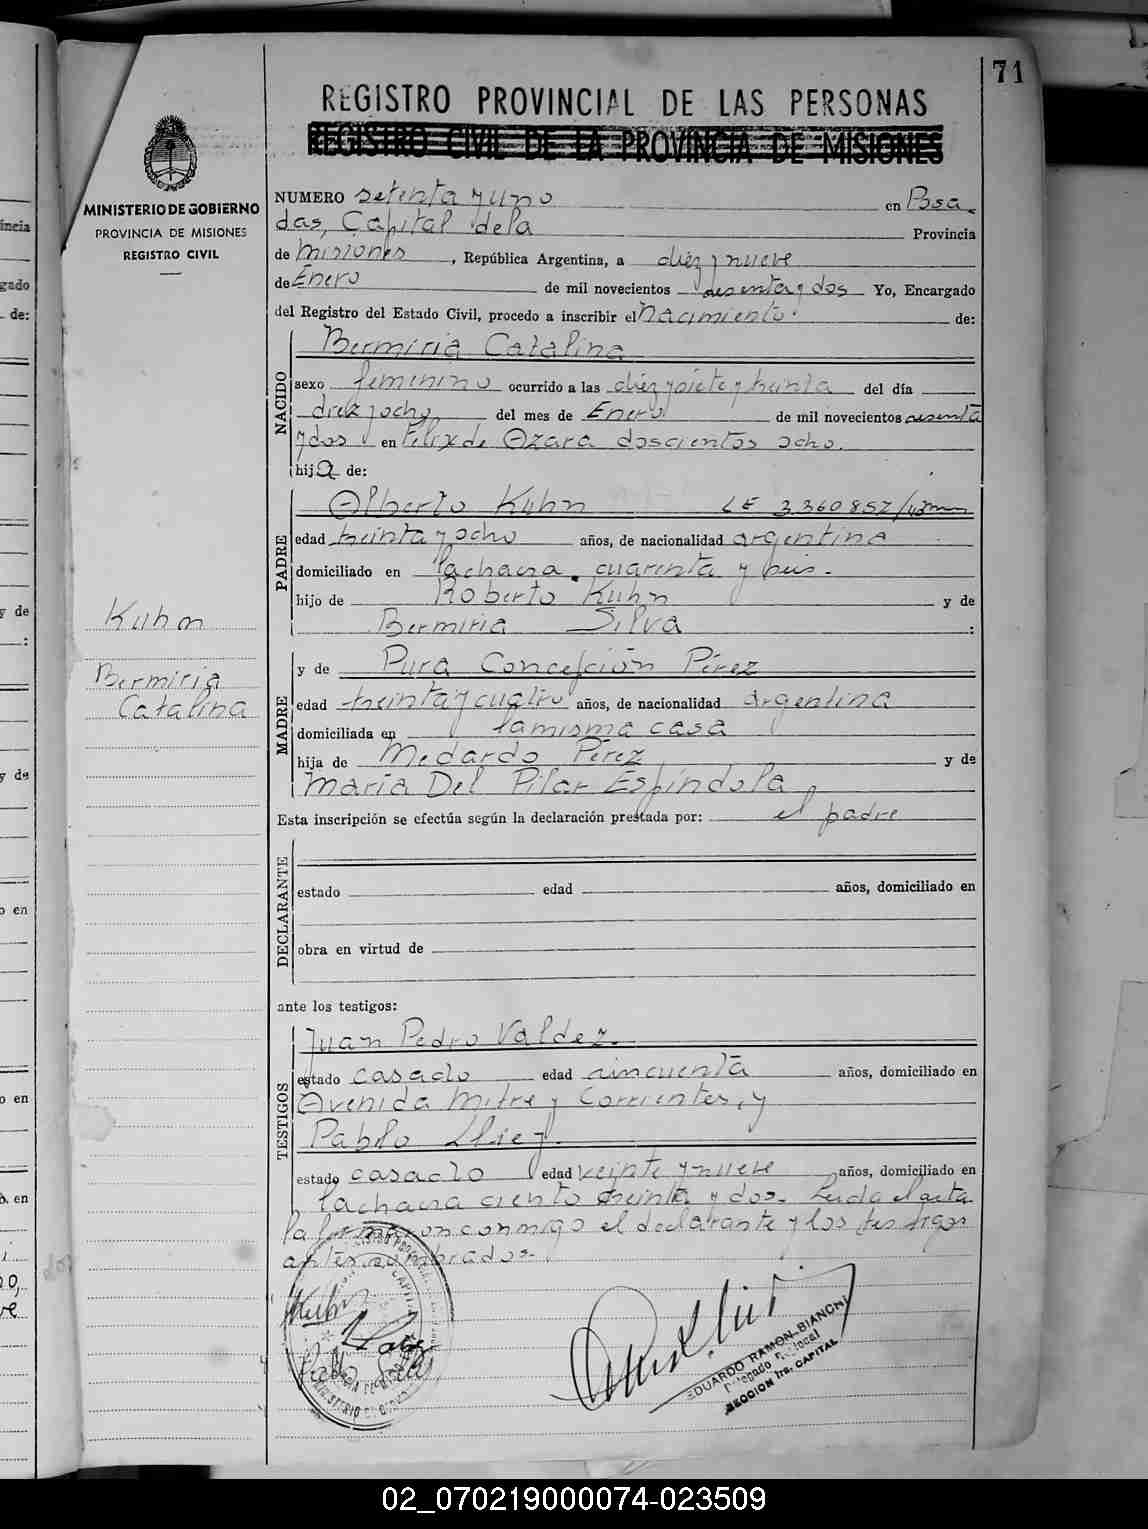 71
REGISTRO PROVINCIAL DE LAS PERSONAS
REGISTRO CIVIL DE LA PROVINCIA DE MISIONES
MINISTERIO DE GOBIERNO
PROVINCIA DE MISIONES
REGISTRO CIVIL
NUMERO setenta y uno en Posa
das, Capital de la Provincia
de Misiones, República Argentina, a diez y nueve
de Enero de mil novecientos sesenta y dos Yo, Encargado
del Registro del Estado Civil, procedo a inscribir el Nacimiento de:
NACIDO
Bermiria Catalina
sexo femenino ocurrido a las diez y siete y treinta del día
diez y ocho del mes de Enero de mil novecientos sesenta
y dos en Felix de Azara doscientos ocho.
hija de:
PADRE
Alberto Kuhn LE 3.360.857
edad treinta y ocho años, de nacionalidad argentina
domiciliado en la chacra cuarenta y seis.
hijo de Roberto Kuhn y de
Bermiria Silva :
Kuhn
Bermiria
Catalina
MADRE
y de Pura Concepción Pérez
edad treinta y cuatro años, de nacionalidad argentina
domiciliada en la misma casa
hija de Medardo Pérez y de
María Del Pilar Espíndola
Esta inscripción se efectúa según la declaración prestada por: el padre
DECLARANTE
estado edad años, domiciliado en
obra en virtud de
ante los testigos:
TESTIGOS
Juan Pedro Valdez.
estado casado edad cincuenta años, domiciliado en
Avenida Mitre y Corrientes, y
Pablo
estado casado edad veinte y nueve años, domiciliado en
la chacra ciento treinta y dos. Leida el acta
la firmaron conmigo el declarante y los testigos
antes nombrados.
Kuhn
EDUARDO RAMON BIANCHI
Delegado Regional
SECCION 1ra. CAPITAL
02_070219000074-023509